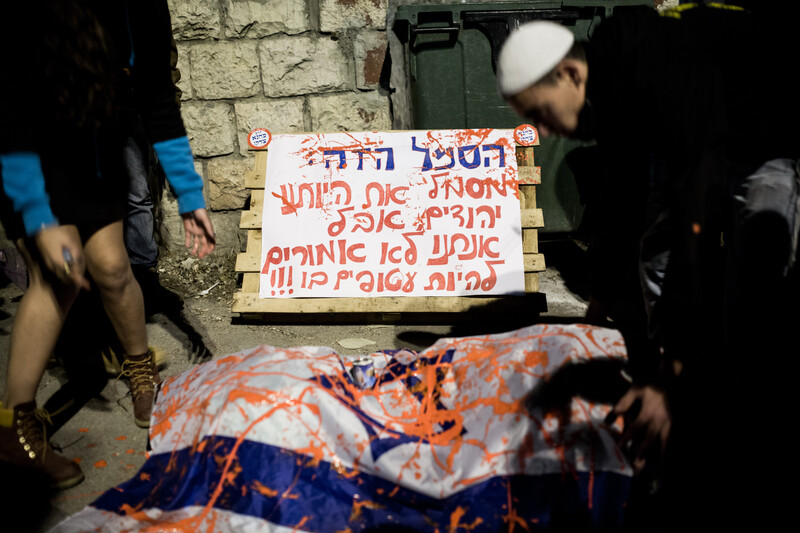 הסמל הזה
מסמל את היותנו
יהודים, אבל
אנחנו לא אמורים
להיות עטופים בו!!!